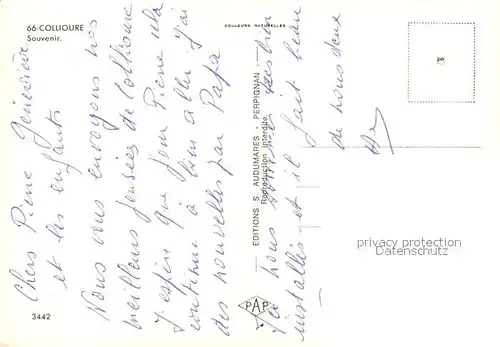 66-COLLIOURE
Souvenir.
COULEURS NATURELLES
Chers Pierre Geneviève
et les enfants
Nous vous envoyons nos
meilleures pensées de Collioure
J'espère que pour Pierre cela
continue à bien aller j'ai
des nouvelles par Papa
Ici nous sommes très bien
installés et il fait beau
de nous deux
EDITIONS S. AUDUMARES - PERPIGNAN
Reproduction interdite
PAP
3442
privacy protection
Datenschutz